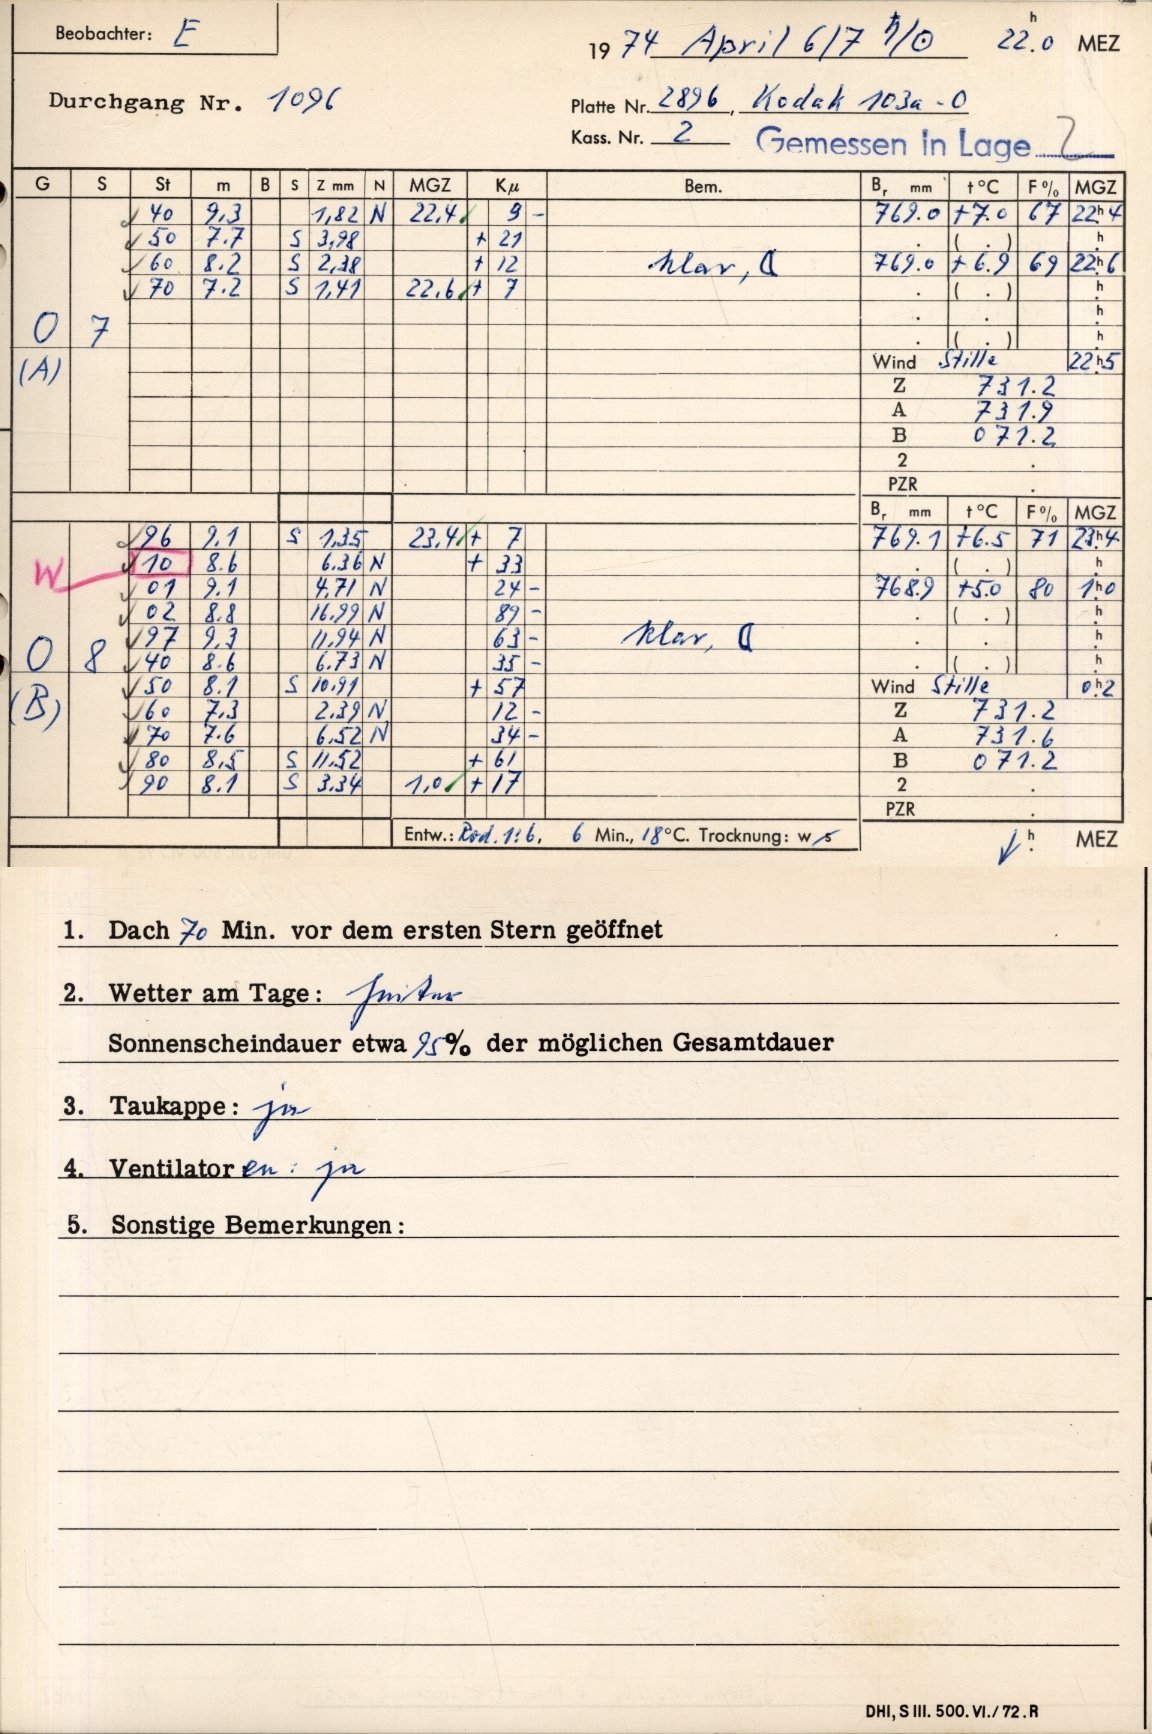 Beobachter: E
1974 April 6/7 ♄/☉ 22.ʰ0 MEZ
Durchgang Nr. 1096
Platte Nr. 2896, Kodak 103a-O
Kass. Nr. 2 Gemessen in Lage 2
G S St m B S Z mm N MGZ Kμ Bem. Br mm t°C F% MGZ
40 9,3 1,82 N 22,4 9 - 769.0 +7.0 67 22ʰ4
50 7.7 S 3,98 + 21 . ( . ) ʰ
60 8.2 S 2,38 + 12 klar, 769.0 +6.9 69 22ʰ6
70 7.2 S 1,41 22,6 + 7 . ( . ) ʰ
. . ʰ
O 7 . ( . ) ʰ
(A) Wind Stille 22ʰ5
Z 731.2
A 731.9
B 071.2
2 .
PZR .
Br mm t°C F% MGZ
96 9.1 S 1,35 23,4 + 7 769.1 +6.5 71 23ʰ4
W 10 8.6 6.36 N + 33 . ( . ) ʰ
01 9.1 4,71 N 24 - 768.9 +5.0 80 1ʰ0
02 8.8 16,99 N 89 - . ( . ) ʰ
97 9,3 11,94 N 63 - klar, . . ʰ
O 8 40 8.6 6.73 N 35 - . ( . ) ʰ
(B) 50 8.1 S 10,91 + 57 Wind Stille 0ʰ2
60 7,3 2,39 N 12 - Z 731.2
70 7.6 6,52 N 34 - A 731.6
80 8,5 S 11,52 + 61 B 071.2
90 8.1 S 3,34 1,0 + 17 2 .
PZR .
Entw.: Rod. 1:6, 6 Min., 18°C. Trocknung: w s ʰ MEZ
1. Dach 70 Min. vor dem ersten Stern geöffnet
2. Wetter am Tage: heiter
Sonnenscheindauer etwa 95% der möglichen Gesamtdauer
3. Taukappe: ja
4. Ventilatoren: ja
5. Sonstige Bemerkungen:
DHI, S III. 500. VI./72. R